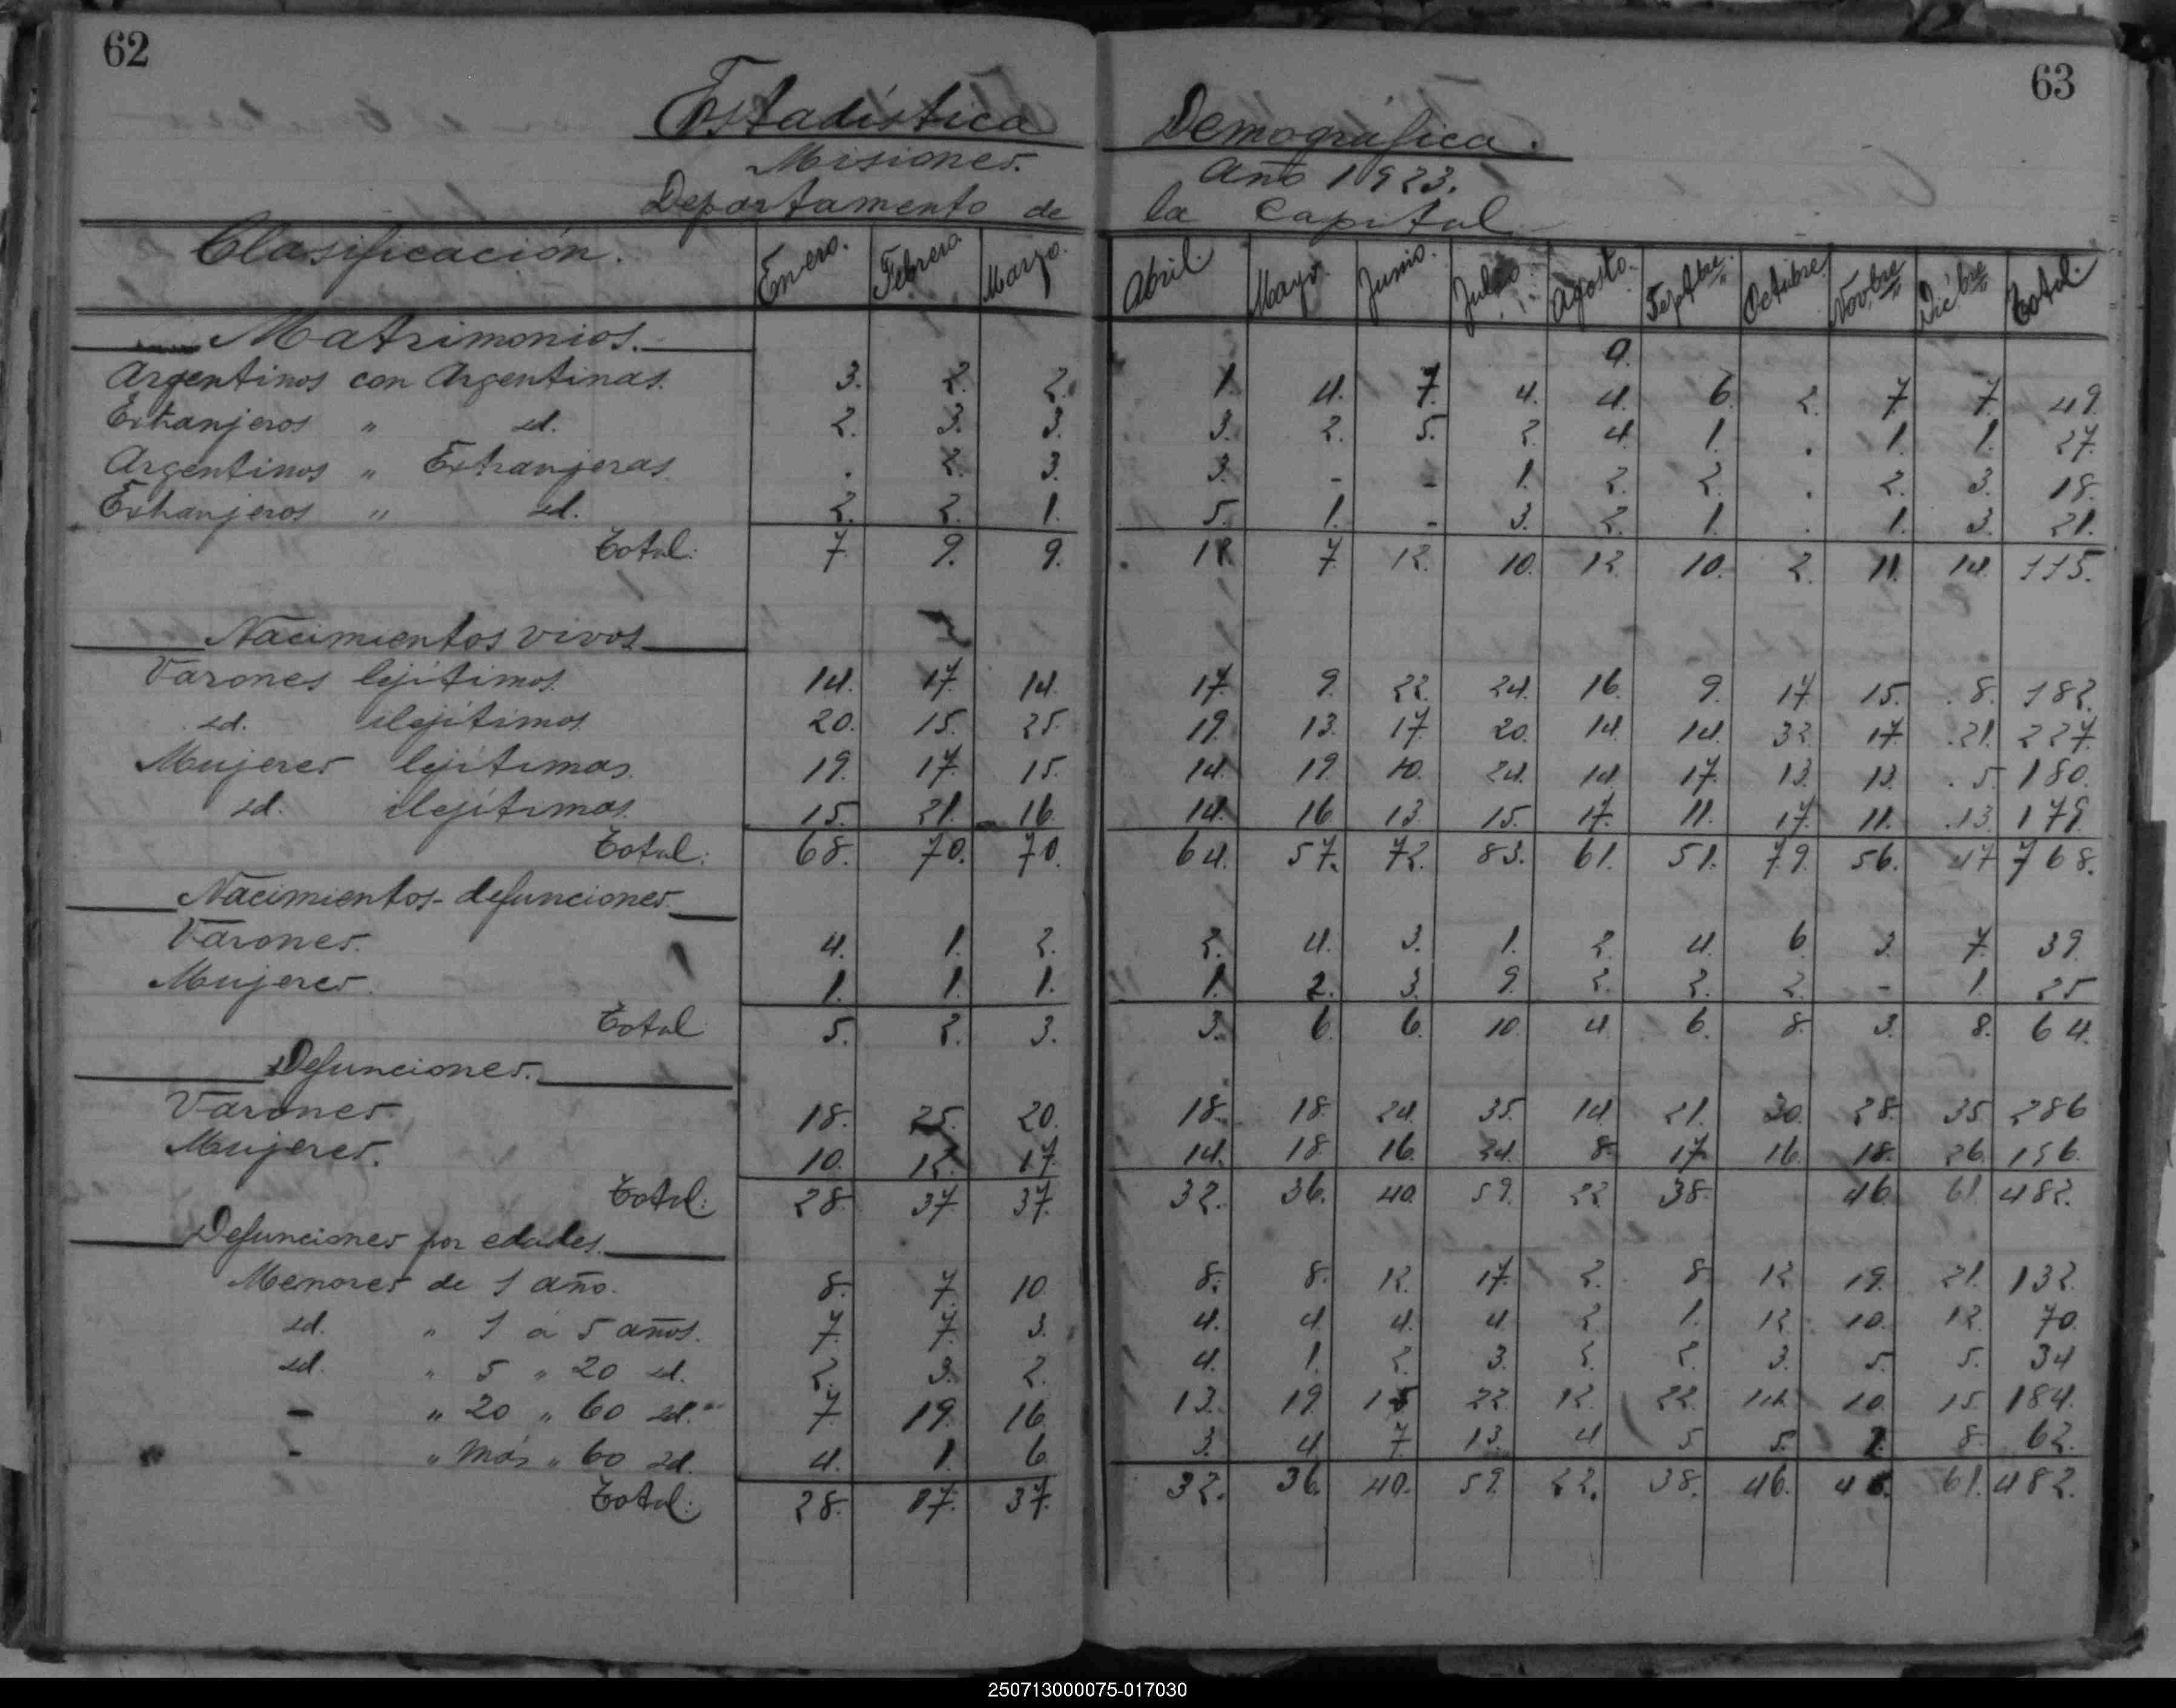 62
63
Estadística Demográfica.
Misiones. Año 1923.
Departamento de la Capital
Clasificación. Enero. Febrero Marzo. Abril. Mayo. Junio. Julio. Agosto. Septbre. Octubre. Novbre Dicbre Total.
Matrimonios.
9.
Argentinos con Argentinas. 3. 2. 2. 1. 4. 7. 4. 4. 6. 2. 7. 7. 49.
Extranjeros " id. 2. 3. 3. 3. 2. 5. 2. 4. 1. . 1. 1. 27.
Argentinos " Extranjeras . 2. 3. 3. - - 1. 2. 2. . 2. 3. 18.
Extranjeros " id. 2. 2. 1. 5. 1. - 3. 2. 1. . 1. 3. 21.
Total: 7. 9. 9. 12. 7. 12. 10. 12. 10. 2. 11. 14. 115.
Nacimientos vivos
Varones lejítimos. 14. 17. 14. 17. 9. 22. 24. 16. 9. 17. 15. 8. 182.
id. ilejítimos. 20. 15. 25. 19. 13. 17. 20. 14. 14. 32. 17. 21. 227.
Mujeres lejítimas. 19. 17. 15. 14. 19. 10. 24. 14. 17. 13. 13. 5. 180.
id. ilejítimas. 15. 21. 16. 14. 16. 13. 15. 17. 11. 17. 11. 13. 179.
Total: 68. 70. 70. 64. 57. 72. 83. 61. 51. 79. 56. 47 768.
Nacimientos-defunciones.
Varones. 4. 1. 2. 2. 4. 3. 1. 2. 4. 6. 3. 7. 39.
Mujeres. 1. 1. 1. 1. 2. 3. 9. 2. 2. 2. - 1. 25
Total 5. 2. 3. 3. 6. 6. 10. 4. 6. 8. 3. 8. 64.
Defunciones.
Varones. 18. 25. 20. 18. 18. 24. 35. 14. 21. 30. 28. 35 286
Mujeres. 10. 12. 17. 14. 18. 16. 24. 8. 17. 16. 18. 26. 196.
Total: 28. 37. 37. 32. 36. 40. 59. 22 38. 46. 61. 482.
Defunciones por edades.
Menores de 1 año. 8. 7. 10. 8. 8. 12. 17. 2. 8. 12 19. 21. 132.
id. " 1 á 5 años. 7. 7. 3. 4. 4. 4. 4 2. 1. 12. 10. 12. 70.
id. " 5 " 20 id. 2. 3. 2. 4. 1. 2. 3. 2. 2. 3. 5. 5. 34
- " 20 " 60 id. 7. 19. 16. 13. 19. 15 22. 12. 22. 14. 10. 15. 184.
- " más " 60 id. 4. 1. 6. 3. 4 7. 13. 4 5 5. 2. 8. 62.
Total: 28. 37. 37. 32. 36. 40. 59. 22. 38. 46. 46. 61. 482.
250713000075-017030